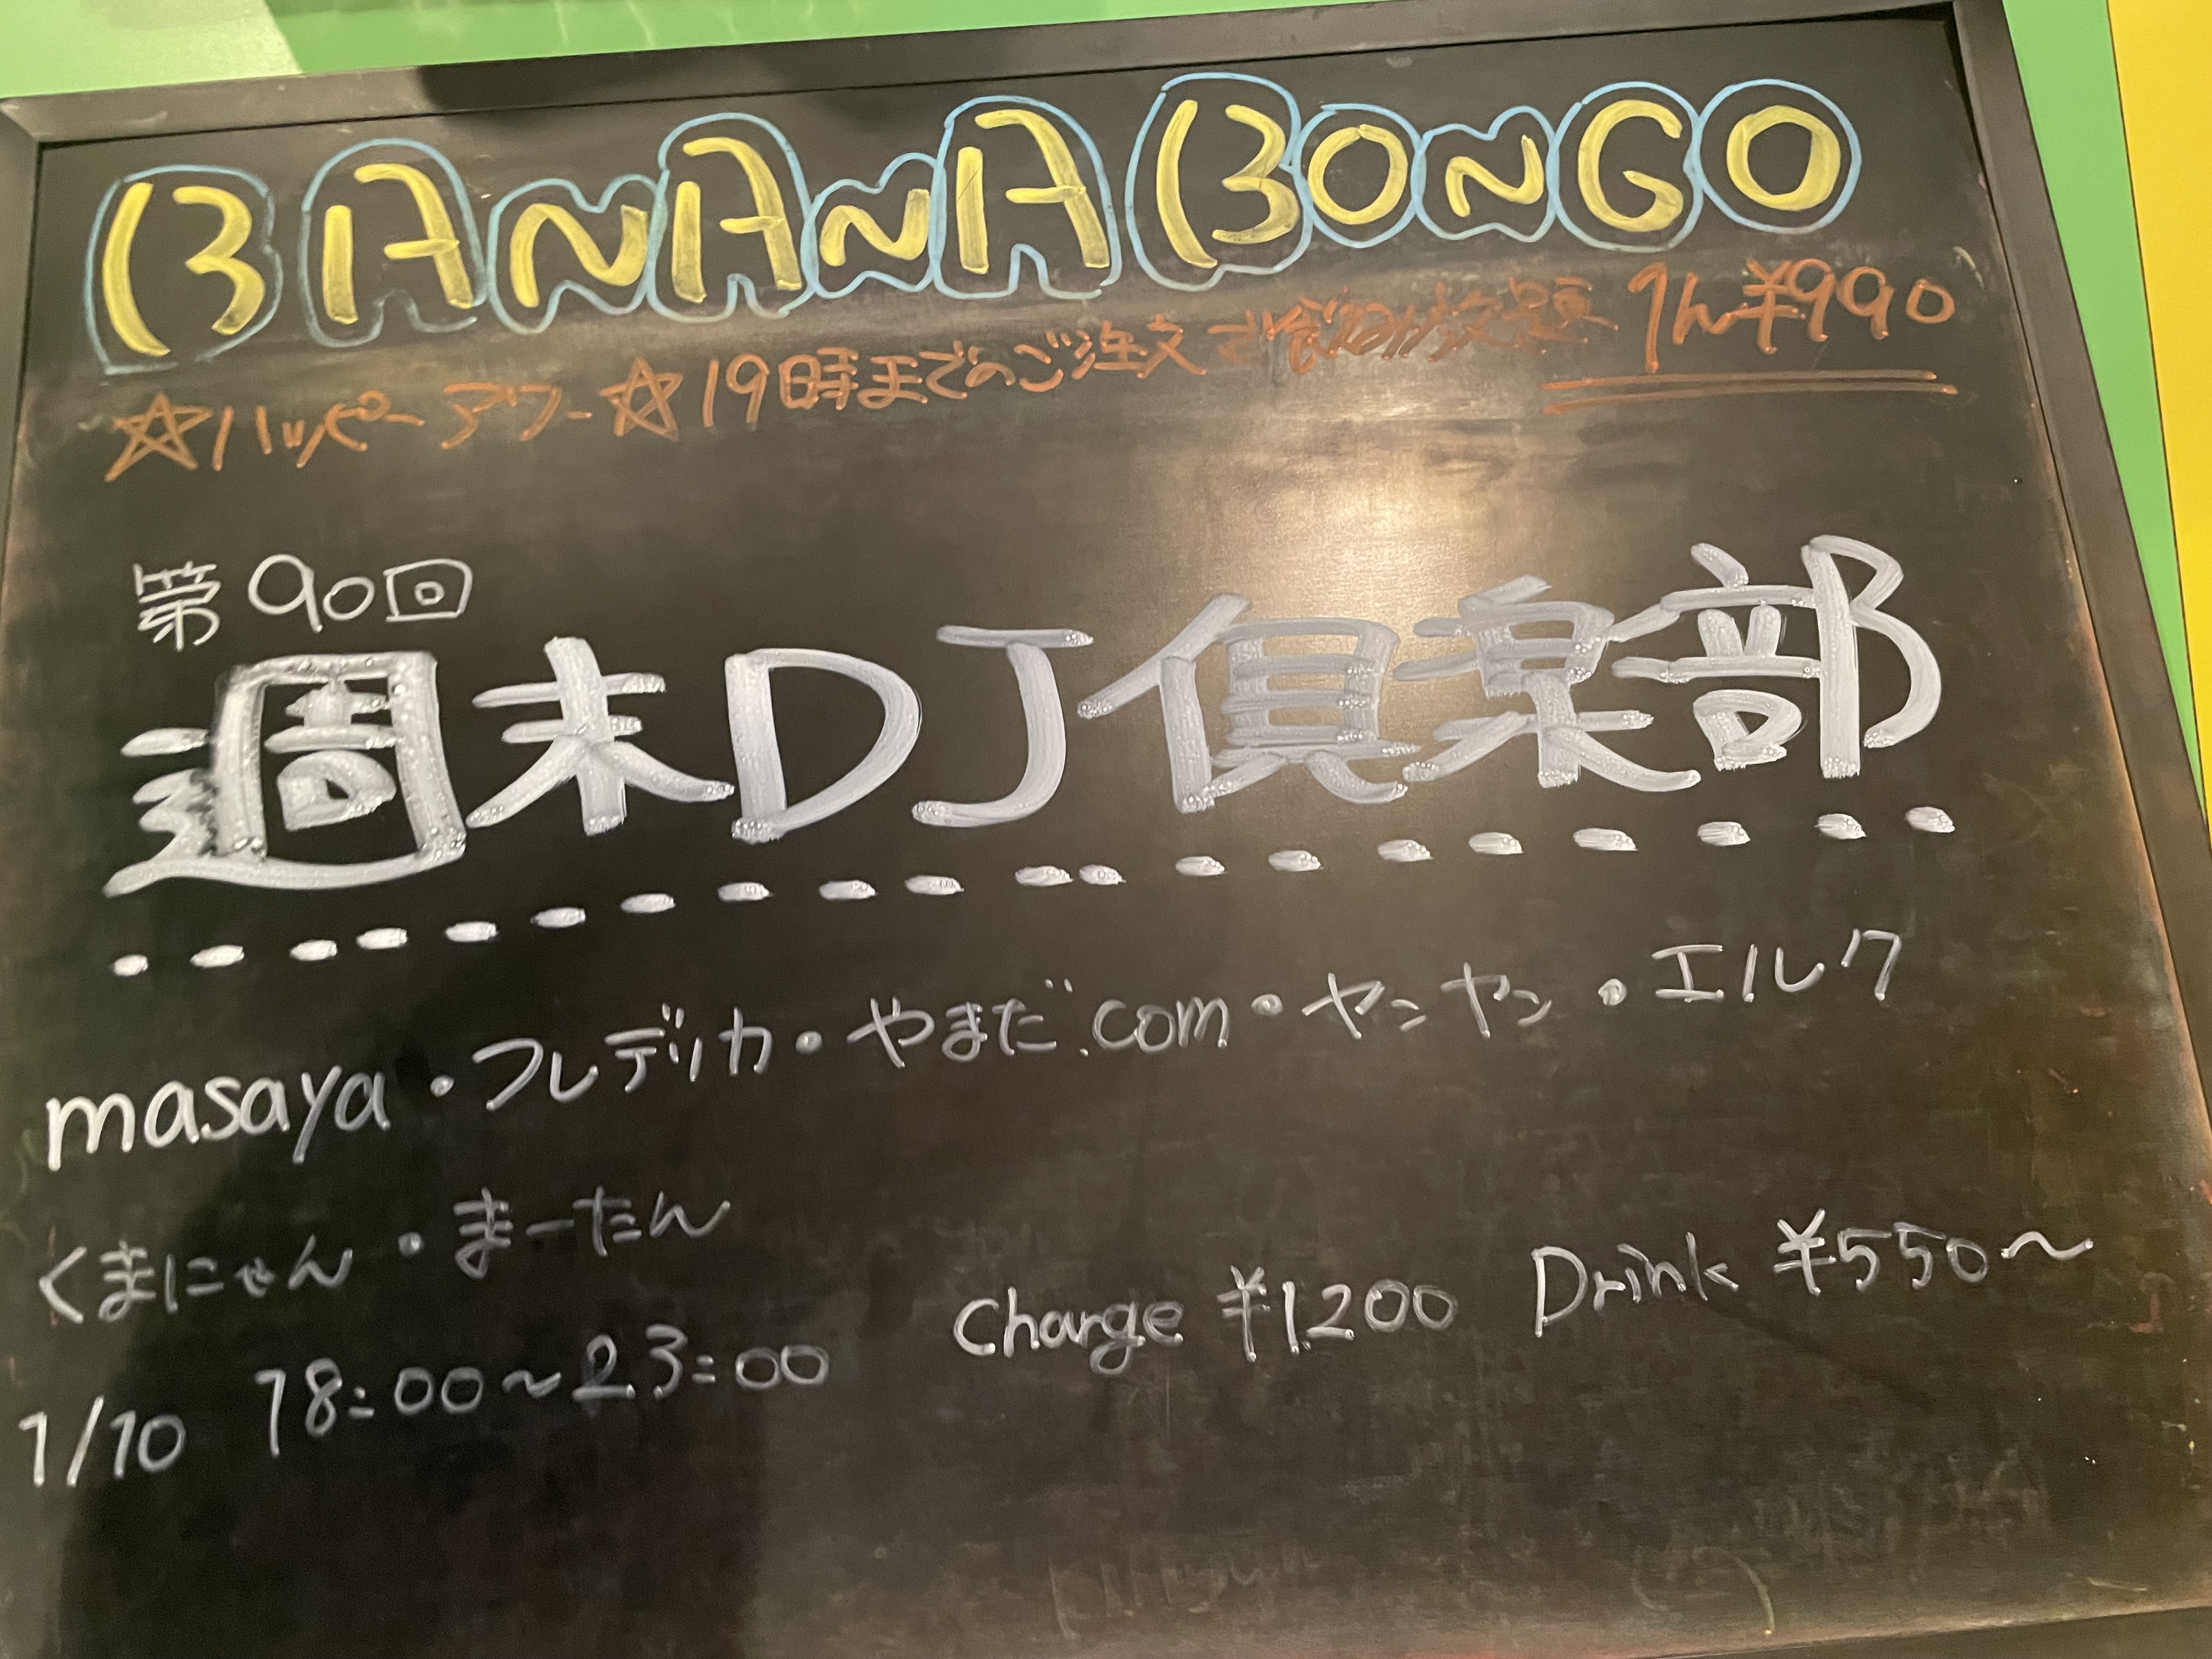 BANANA BONGO
☆ハッピーアワー☆19時までのご注文で飲み放題 1h¥990
第90回
週末DJ倶楽部
masaya・フレデリカ・やまだ.com・ヤンヤン・エルク
くまにゃん・まーたん
1/10 18:00~23:00 Charge ¥1200 Drink ¥550~